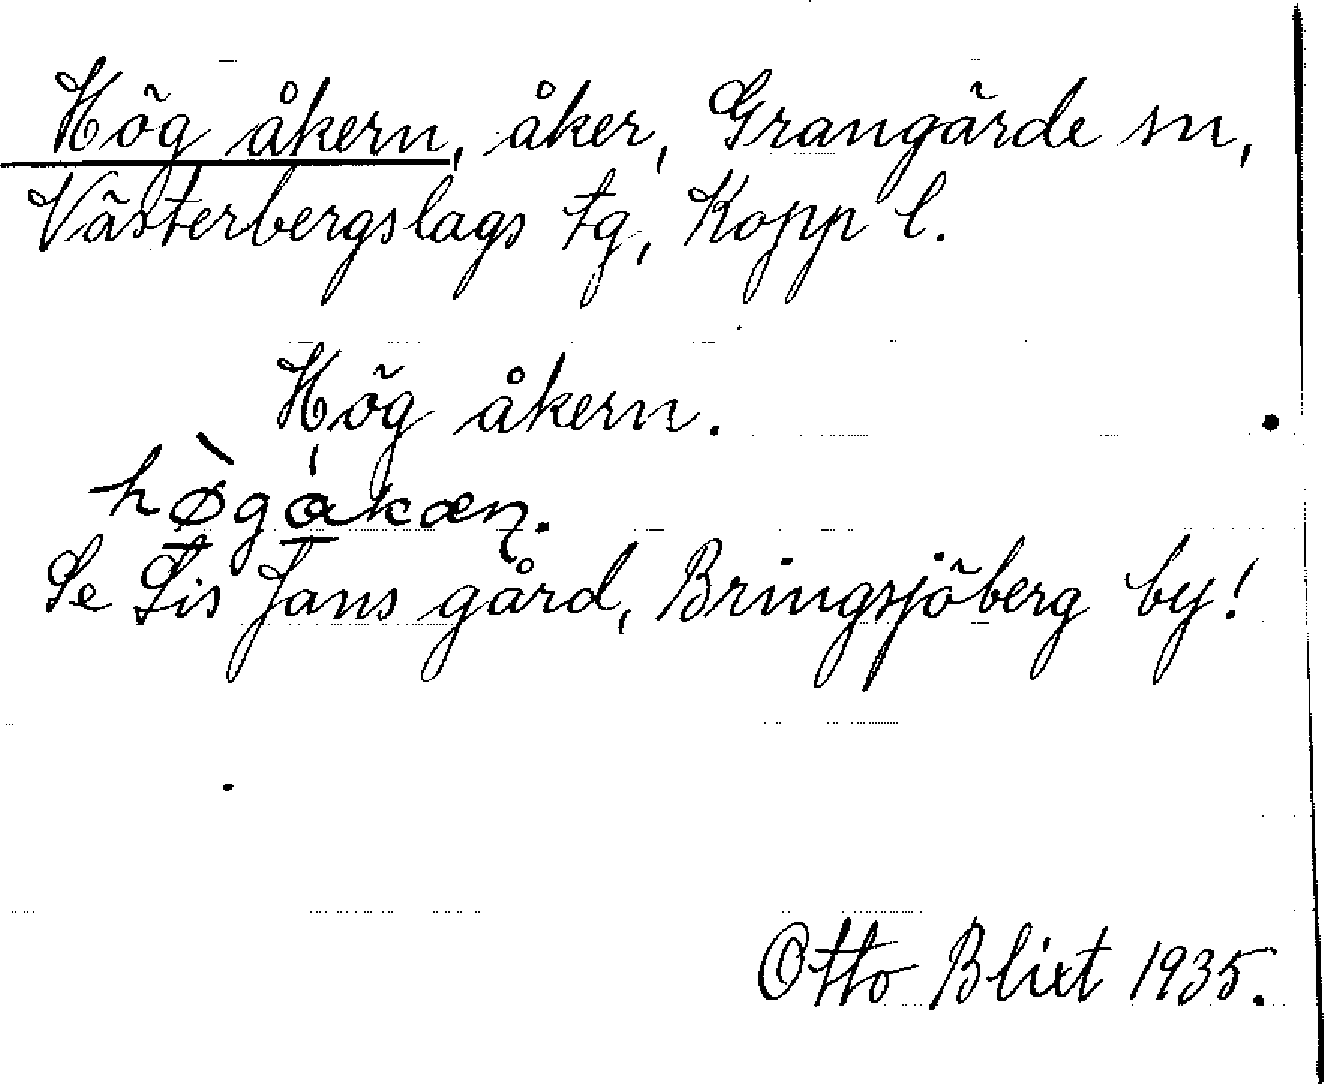 Hög åkern, åker, Grangärde sn,
Västerbergslags tg, Kopp l.
Hög åkern.
hø̀gåkæņ.
Se Lis Jans gård, Bringsjöberg by!
Otto Blixt 1935.